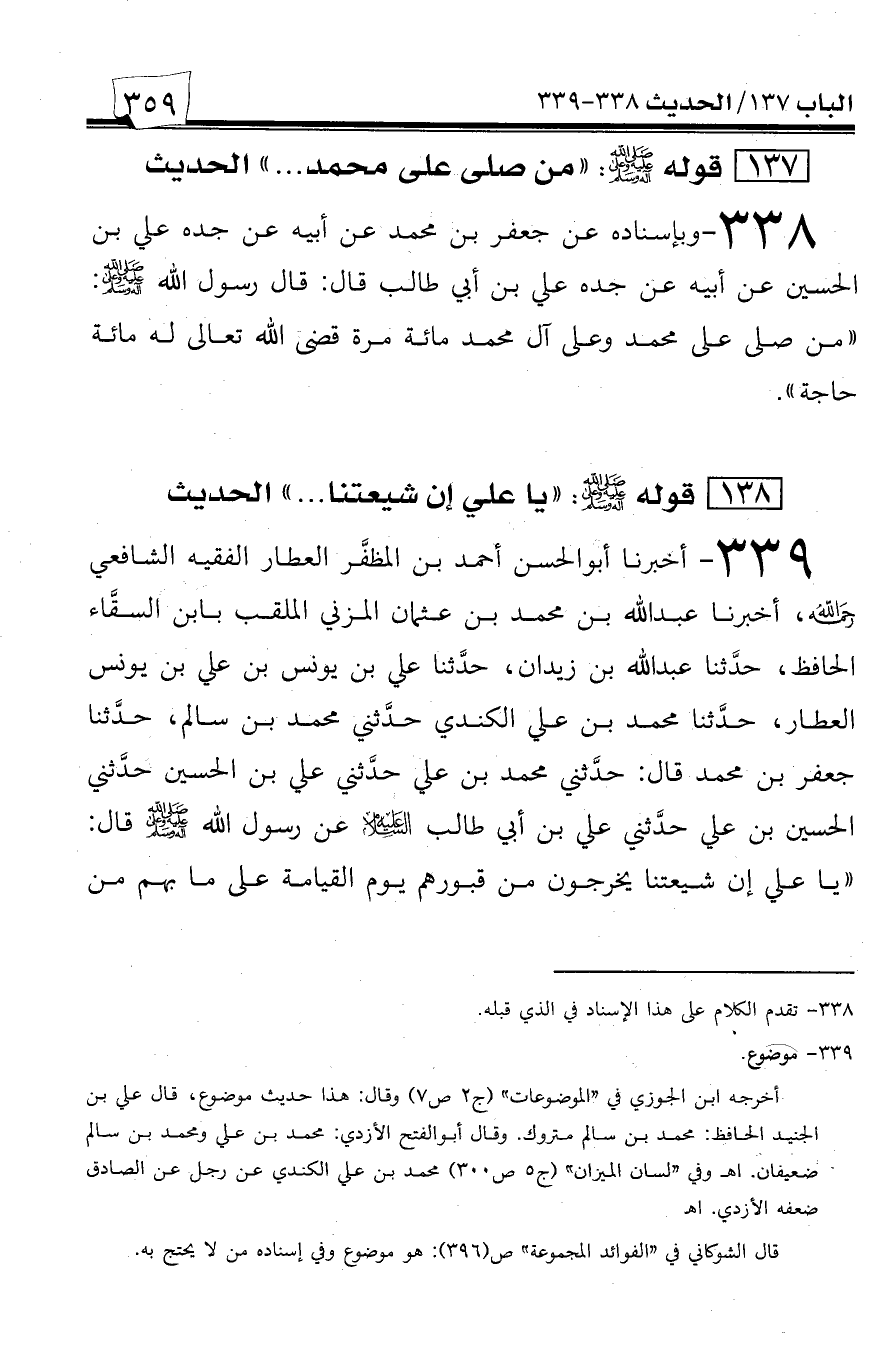 الباب ١٣٧/ الحديث ٣٣٨-٣٣٩
٣٥٩
١٣٧ قوله ﷺ: «من صلى على محمد...» الحديث
٣٣٨-وبإسناده عن جعفر بن محمد عن أبيه عن جده علي بن
الحسين عن أبيه عن جده علي بن أبي طالب قال: قال رسول الله ﷺ:
«من صلى على محمد وعلى آل محمد مائة مرة قضى الله تعالى له مائة
حاجة».
١٣٨ قوله ﷺ: «يا علي إن شيعتنا...» الحديث
٣٣٩- أخبرنا أبوالحسن أحمد بن المظفَّر العطار الفقيه الشافعي
رحمه الله، أخبرنا عبدالله بن محمد بن عثمان المزني الملقب بابن السقَّاء
الحافظ، حدَّثنا عبدالله بن زيدان، حدَّثنا علي بن يونس بن علي بن يونس
العطار، حدَّثنا محمد بن علي الكندي حدَّثني محمد بن سالم، حدَّثنا
جعفر بن محمد قال: حدَّثني محمد بن علي حدَّثني علي بن الحسين حدَّثني
الحسين بن علي حدَّثني علي بن أبي طالب عليه السلام عن رسول الله ﷺ قال:
«يا علي إن شيعتنا يخرجون من قبورهم يوم القيامة على ما بهم من
٣٣٨- تقدم الكلام على هذا الإسناد في الذي قبله.
٣٣٩- موضوع.
أخرجه ابن الجوزي في "الموضوعات" (ج٢ ص٧) وقال: هذا حديث موضوع، قال علي بن
الجنيد الحافظ: محمد بن سالم متروك. وقال أبوالفتح الأزدي: محمد بن علي ومحمد بن سالم
ضعيفان. اهـ وفي "لسان الميزان" (ج٥ ص٣٠٠) محمد بن علي الكندي عن رجل عن الصادق
ضعفه الأزدي. اهـ
قال الشوكاني في "الفوائد المجموعة" ص(٣٩٦): هو موضوع وفي إسناده من لا يحتج به.